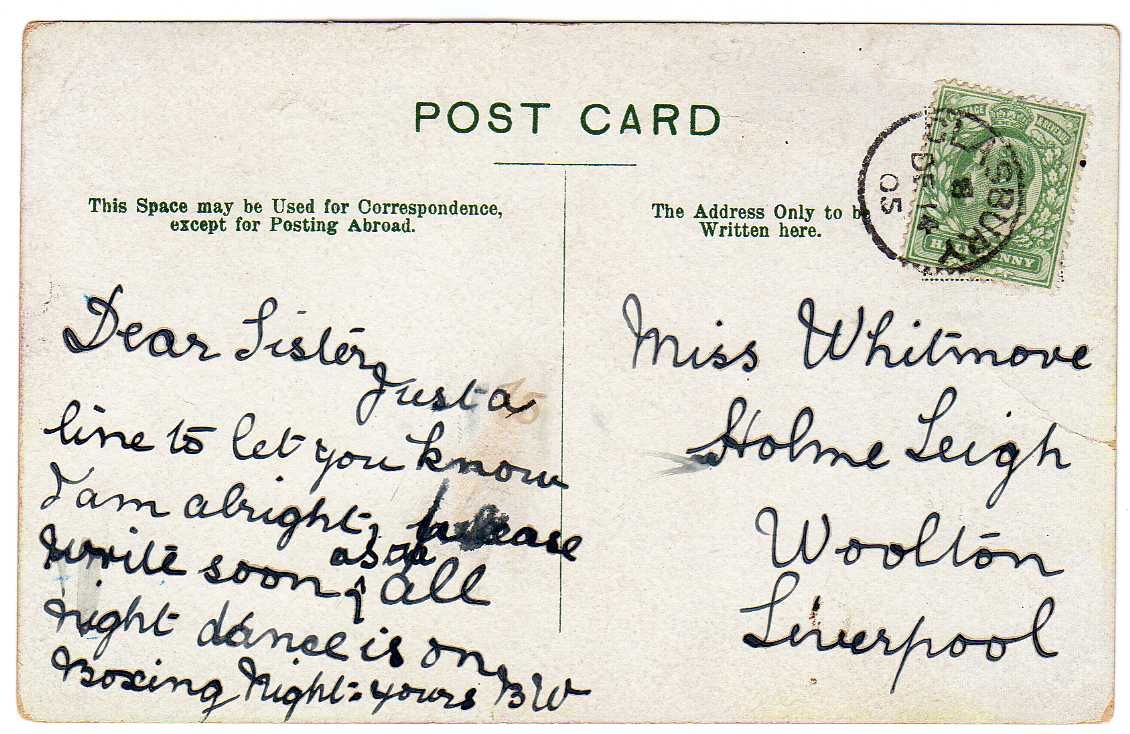 POST CARD
This Space may be Used for Correspondence,
except for Posting Abroad.
The Address Only to be
Written here.
GLASBURY
DE 14
05
HALFPENNY
Dear Sister
Just a
line to let you know
I am alright, please
write soon as the all
night dance is on
Boxing Night: yours BW
Miss Whitmore
Holme Leigh
Woolton
Liverpool